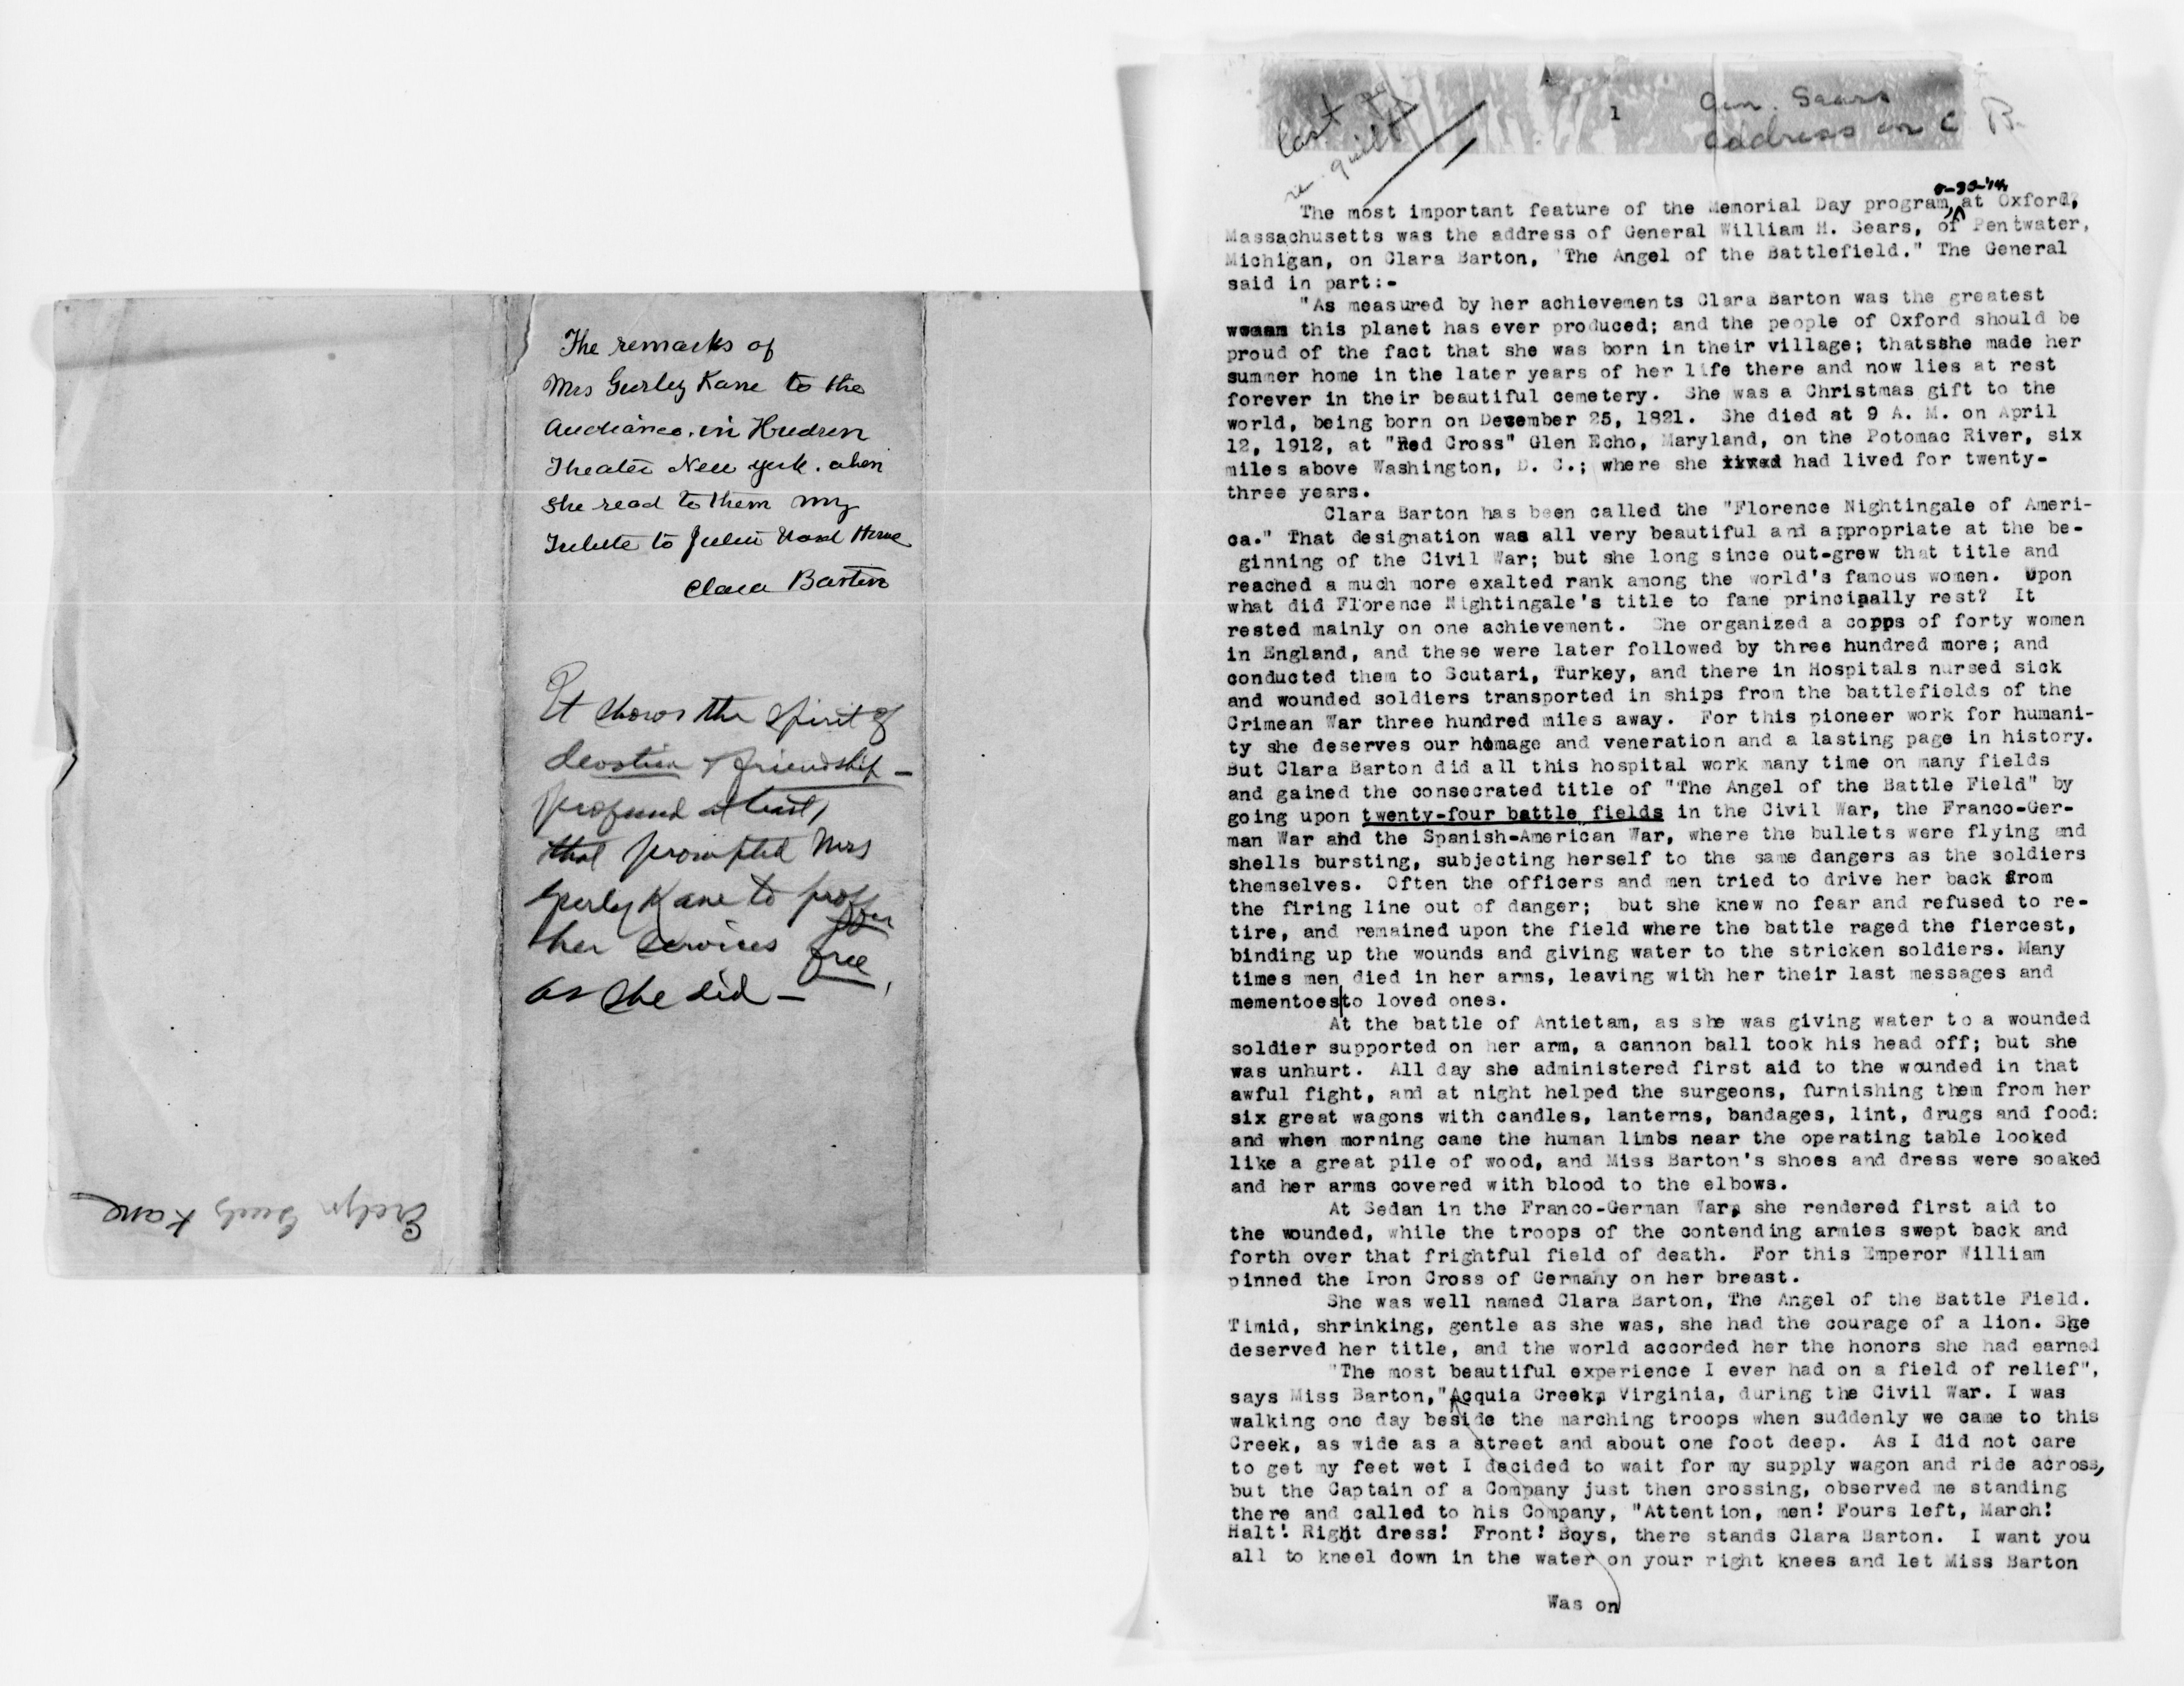 The remarks of
Mrs Gurley Kane to the
Audiance, in Hudson
Theater New York. when
she read to them my
Tribute to Julia Ward Howe
Clara Barton
It shows the spirit of
devotion & friendship —
profound at least,
that prompted Mrs
Gurley Kane to proffer
her services free,
as she did —
Evelyn Gurley Kane
last
quilt
1
Gen. Sears
address on C B.
5-30-'14
The most important feature of the Memorial Day program, at Oxford,
Massachusetts was the address of General William H. Sears, of Pentwater,
Michigan, on Clara Barton, 'The Angel of the Battlefield." The General
said in part:-
"As measured by her achievements Clara Barton was the greatest
woaan this planet has ever produced; and the people of Oxford should be
proud of the fact that she was born in their village; thatsshe made her
summer home in the later years of her life there and now lies at rest
forever in their beautiful cemetery. She was a Christmas gift to the
world, being born on December 25, 1821. She died at 9 A. M. on April
12, 1912, at "Red Cross" Glen Echo, Maryland, on the Potomac River, six
miles above Washington, D. C.; where she had lived for twenty-
three years.
Clara Barton has been called the "Florence Nightingale of Ameri-
ca." That designation was all very beautiful and appropriate at the be-
ginning of the Civil War; but she long since out-grew that title and
reached a much more exalted rank among the world's famous women. Upon
what did Florence Nightingale's title to fame principally rest? It
rested mainly on one achievement. She organized a copps of forty women
in England, and these were later followed by three hundred more; and
conducted them to Scutari, Turkey, and there in Hospitals nursed sick
and wounded soldiers transported in ships from the battlefields of the
Crimean War three hundred miles away. For this pioneer work for humani-
ty she deserves our homage and veneration and a lasting page in history.
But Clara Barton did all this hospital work many time on many fields
and gained the consecrated title of "The Angel of the Battle Field" by
going upon twenty-four battle fields in the Civil War, the Franco-Ger-
man War and the Spanish-American War, where the bullets were flying and
shells bursting, subjecting herself to the same dangers as the soldiers
themselves. Often the officers and men tried to drive her back from
the firing line out of danger; but she knew no fear and refused to re-
tire, and remained upon the field where the battle raged the fiercest,
binding up the wounds and giving water to the stricken soldiers. Many
times men died in her arms, leaving with her their last messages and
mementoes|to loved ones.
At the battle of Antietam, as she was giving water to a wounded
soldier supported on her arm, a cannon ball took his head off; but she
was unhurt. All day she administered first aid to the wounded in that
awful fight, and at night helped the surgeons, furnishing them from her
six great wagons with candles, lanterns, bandages, lint, drugs and food:
and when morning came the human limbs near the operating table looked
like a great pile of wood, and Miss Barton's shoes and dress were soaked
and her arms covered with blood to the elbows.
At Sedan in the Franco-German War, she rendered first aid to
the wounded, while the troops of the contending armies swept back and
forth over that frightful field of death. For this Emperor William
pinned the Iron Cross of Germany on her breast.
She was well named Clara Barton, The Angel of the Battle Field.
Timid, shrinking, gentle as she was, she had the courage of a lion. She
deserved her title, and the world accorded her the honors she had earned
"The most beautiful experience I ever had on a field of relief",
says Miss Barton,"Acquia Creek, Virginia, during the Civil War. I was
walking one day beside the marching troops when suddenly we came to this
Creek, as wide as a street and about one foot deep. As I did not care
to get my feet wet I decided to wait for my supply wagon and ride across,
but the Captain of a Company just then crossing, observed me standing
there and called to his Company, "Attention, men! Fours left, March!
Halt! Right dress! Front! Boys, there stands Clara Barton. I want you
all to kneel down in the water on your right knees and let Miss Barton
Was on